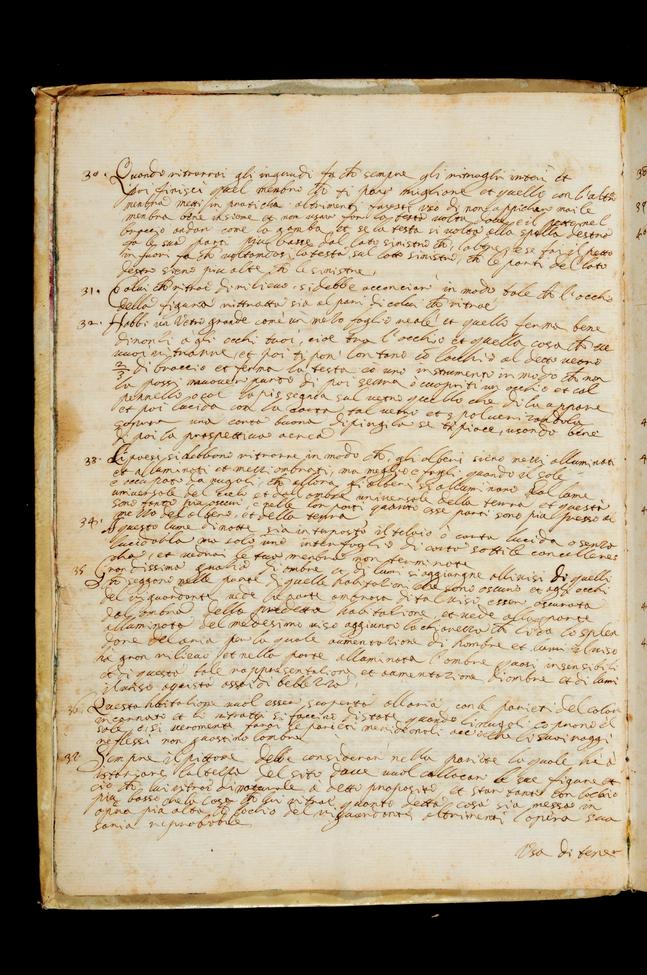 30. Quando ritrarrai gli ingnudi fa ch sempre gli ritraghi interi et
poi finisci quel menbro ch ti par migliore et quello con l'altre
menbra metti in praticha altrimenti faresti uso di non appichar mai le
menbra bene insieme et non usar far la testa volta dove è il petto nel
braccio andar come la gamba et se la testa si volta alla spalla destra
fa le sue parti piu basse dal lato sinistro ch
in fuori fa ch voltandosi la testa sul lato sinistro, ch le parti del lato
destro sieno piu alte, ch le sinistre.
31. Colui ch ritrae di rilievo si debbe acconciar in modo tale ch l'occhio
della figura rittratta sia al pari di colui ch ritrae
32. Habbi un vetro grande come un mezo foglio reale et quello ferma bene
dinanzi a gli occhi tuoi, cioè tra l'occhio et quella cosa ch tu
vuoi ritrarre, et poi ti poni lontano co l'occhio al detto vetro
2/3 di braccio et ferma la testa co uno instrumento in modo ch non
la possi muovere punto di poi serra o cuopriti un occhio et col
pennello o col lapis segnia sul vetro quello che di la appare
et poi lucida con la carta tal vetro et spolverizandola
sopra una carta buona dipingila se ti piace, usando bene
di poi la prospettiva aerea
33. Li paesi si debbono ritrarre in modo ch, gli alberi sieno mezzi alluminati
et alluminati et mezzi ombrati, ma meglio è fargli quando il sole
è occupato da nugoli, ch allora gli alberi s'alluminano dal lume
universale del cielo et dal ombra universale della terra et questi
sono tanto piu oscuri, nelle lor parti quanto esse parti sono piu presso al
mezzo del albero, et della terra.
34. A questo lume di notte sia interposto il telaio o carta lucida o senza
lucidarla ma solo uno interfoglio di carta sottile cancelleresca
et vedrai le tue menbra non terminate
35 Grandissima gratia d'ombre et di lumi s'aggiunge alli visi di quelli
ch seggono nelle parte di quelle habitationi che sono oscure et gli occhi
del risguardante vede la parte ombrosa di tal visi esser oscurata
dal ombra della predetta habitatione, et vede alla parte
alluminata del medesimo viso aggiunto la chiarezza ch li da lo splen
dore del aria per la quale aumentatione di ombre et lumi il viso
ha gran rilievo, et nella parte alluminata l'ombre quasi insensibili
et di questa tale rappresentatione et aumentatione d'ombre et di lumi
il viso aquista assai di bellezza.
36. Questa habitatione vuol esser scoperta all'aria, con le parieti del color
incarnato et li ritratti si faccino di state quando li nugoli coprono il
sole, o si veramente farai le parieti meridionali
reflessi non guastino l'ombre
37. Sempre il pittore debbe considerar nella pariete la quale ha a
istoriare l'altezza del sito dove vuol collocare le sue figure et
ciò ch, lui ritrae di naturale a detto proposito, et star tanto con l'occhio
piu basso che la cosa ch lui ritrae, quanto detta cosa sia messa in
opra piu alta che l'occhio del risguardante, altrimenti l'opera sua
saria reprobabile